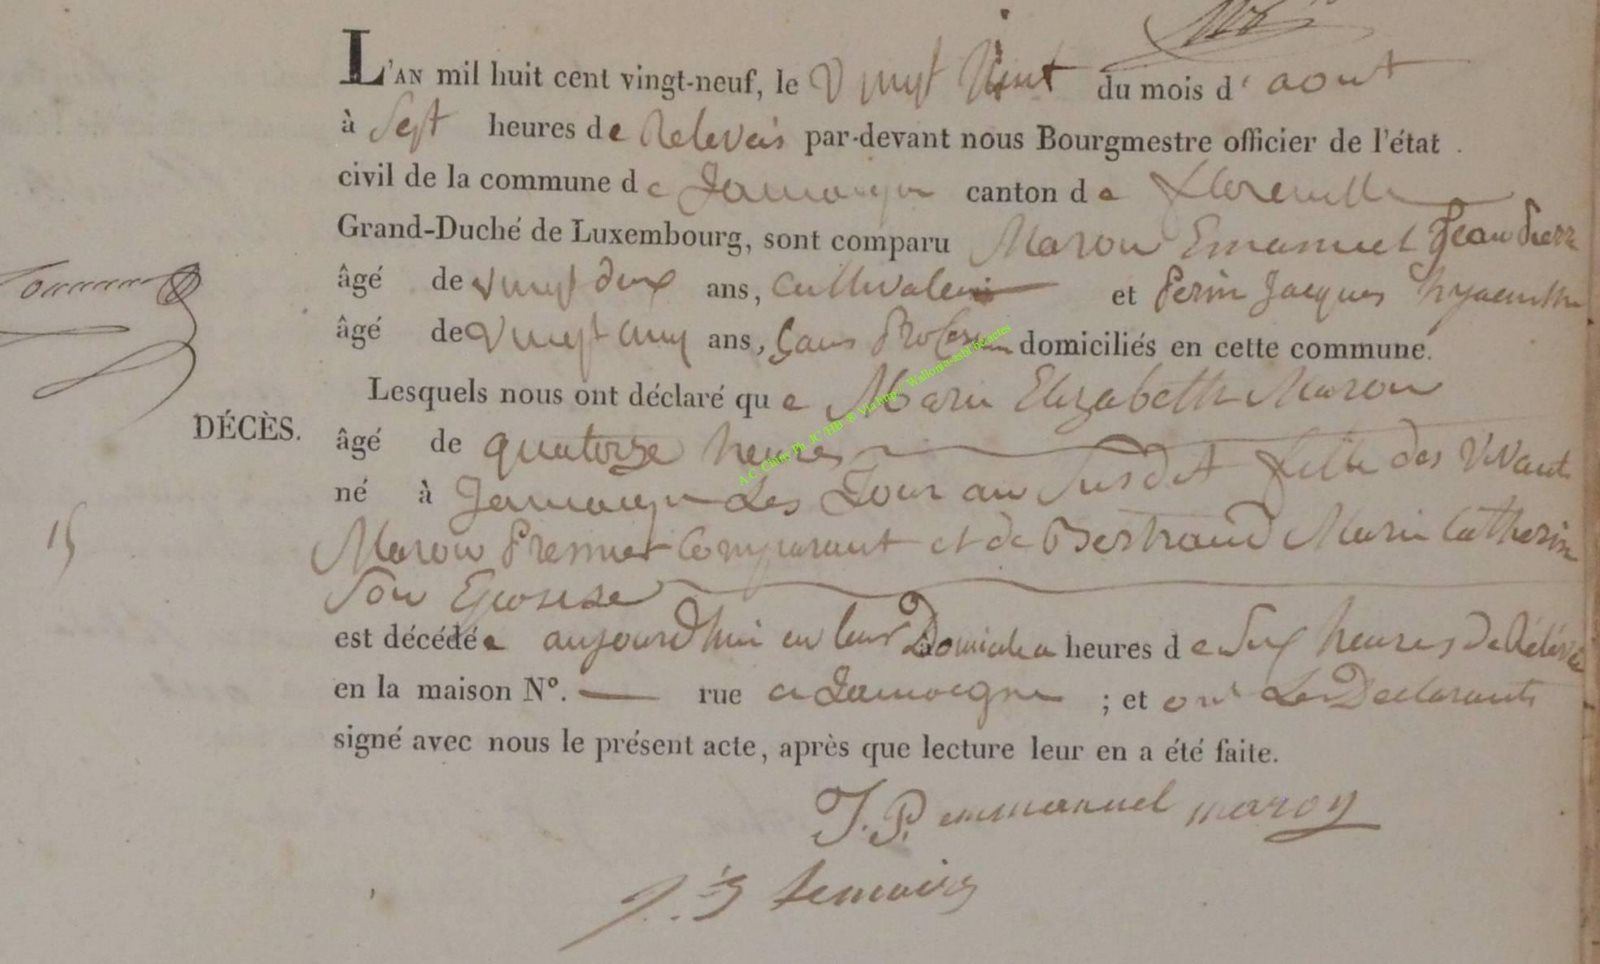 L'AN mil huit cent vingt-neuf, le vingt huit du mois d'aout
à Sept heures de Relevéis par-devant nous Bourgmestre officier de l'état
civil de la commune de Jamoigne canton de florenville
Grand-Duché de Luxembourg, sont comparu Maron Emanuel Jean Pierre
âgé de vingt deux ans, Cultivateur et Perin Jacques hyacinthe
âgé de vingt cinq ans, Sans Profession domiciliés en cette commune.
Lesquels nous ont déclaré que Marie Elizabeth Maron
DÉCÈS.
âgé de quatorze heures
né à Jamoigne Les Jour au Susdit fille des Vivant
15
Maron Premier Comparant et de Bertrand Marie Catherine
Son Epouse
est décédée aujourd'hui en leur Domicile a heures de Six heures de Relevée
en la maison N°. — rue a Jamoigne ; et ont Les Declarants
signé avec nous le présent acte, après que lecture leur en a été faite.
J. P. emmanuel maron